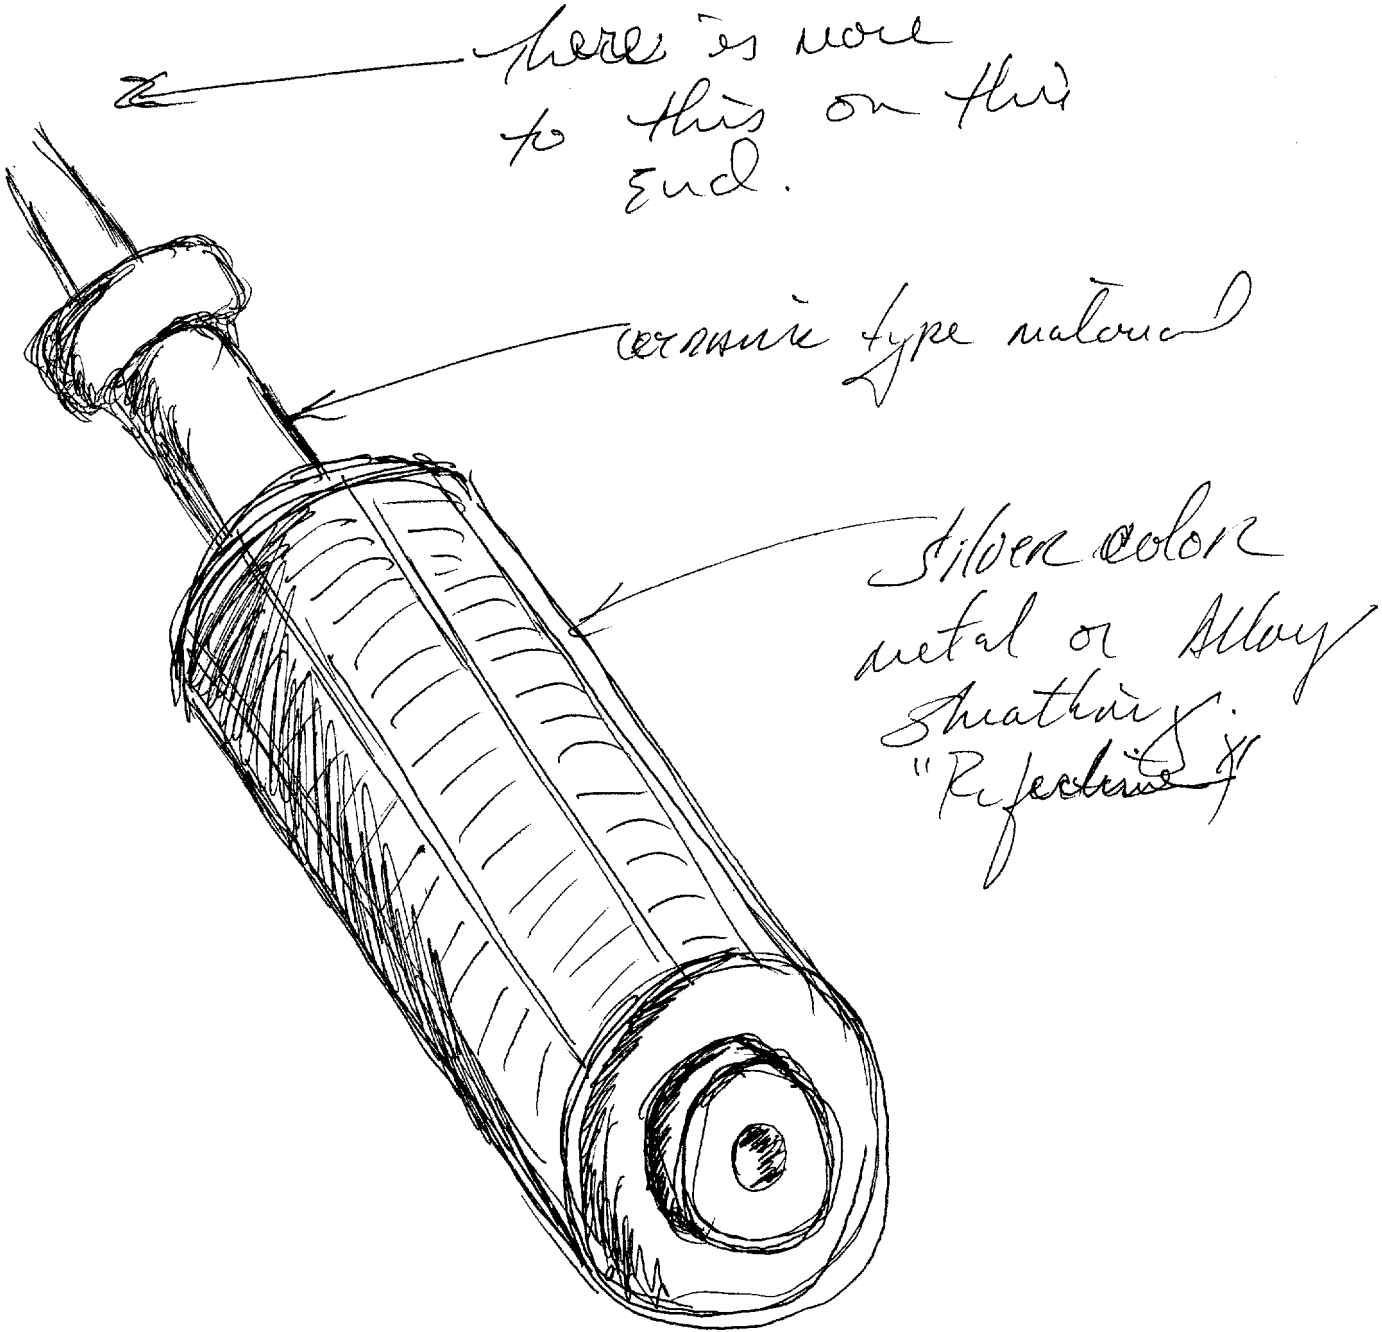 there is more
to this on this
End.
ceramic type material
silver color
metal or Alloy
sheathing.
"Reflective"